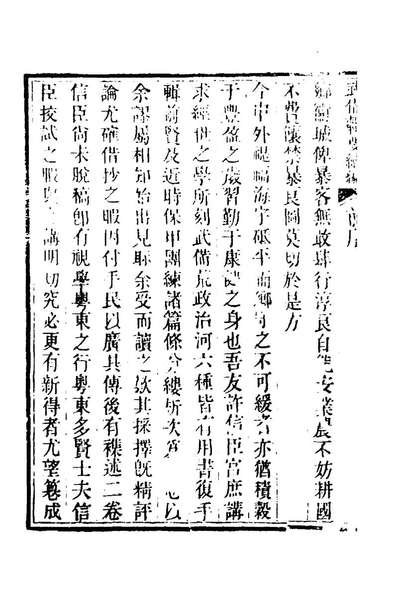 武備輯要續編 序
鄉窺城俾暴客無敢肆行淳良自能安業農不妨耕國
不費讓禁暴良圖莫切於是方
今中外禔福海宇砥平而鄉守之不可緩者亦猶積穀
于豐盈之歲習勤于康健之身也吾友許信臣宮庶講
求經世之學所刻武備荒政治河六種皆有用書復手
輯前賢及近時保甲團練諸篇條分縷析次第 以
余謬屬相知治出見眎余受而讀之於其採擇旣精評
論尤確借抄之暇因付手民以廣其傳後有襍述二卷
信臣尚未脫稿卽有視學粵東之行粵東多賢士夫信
臣挍試之暇與 講明切究必更有新得者尤望篡成